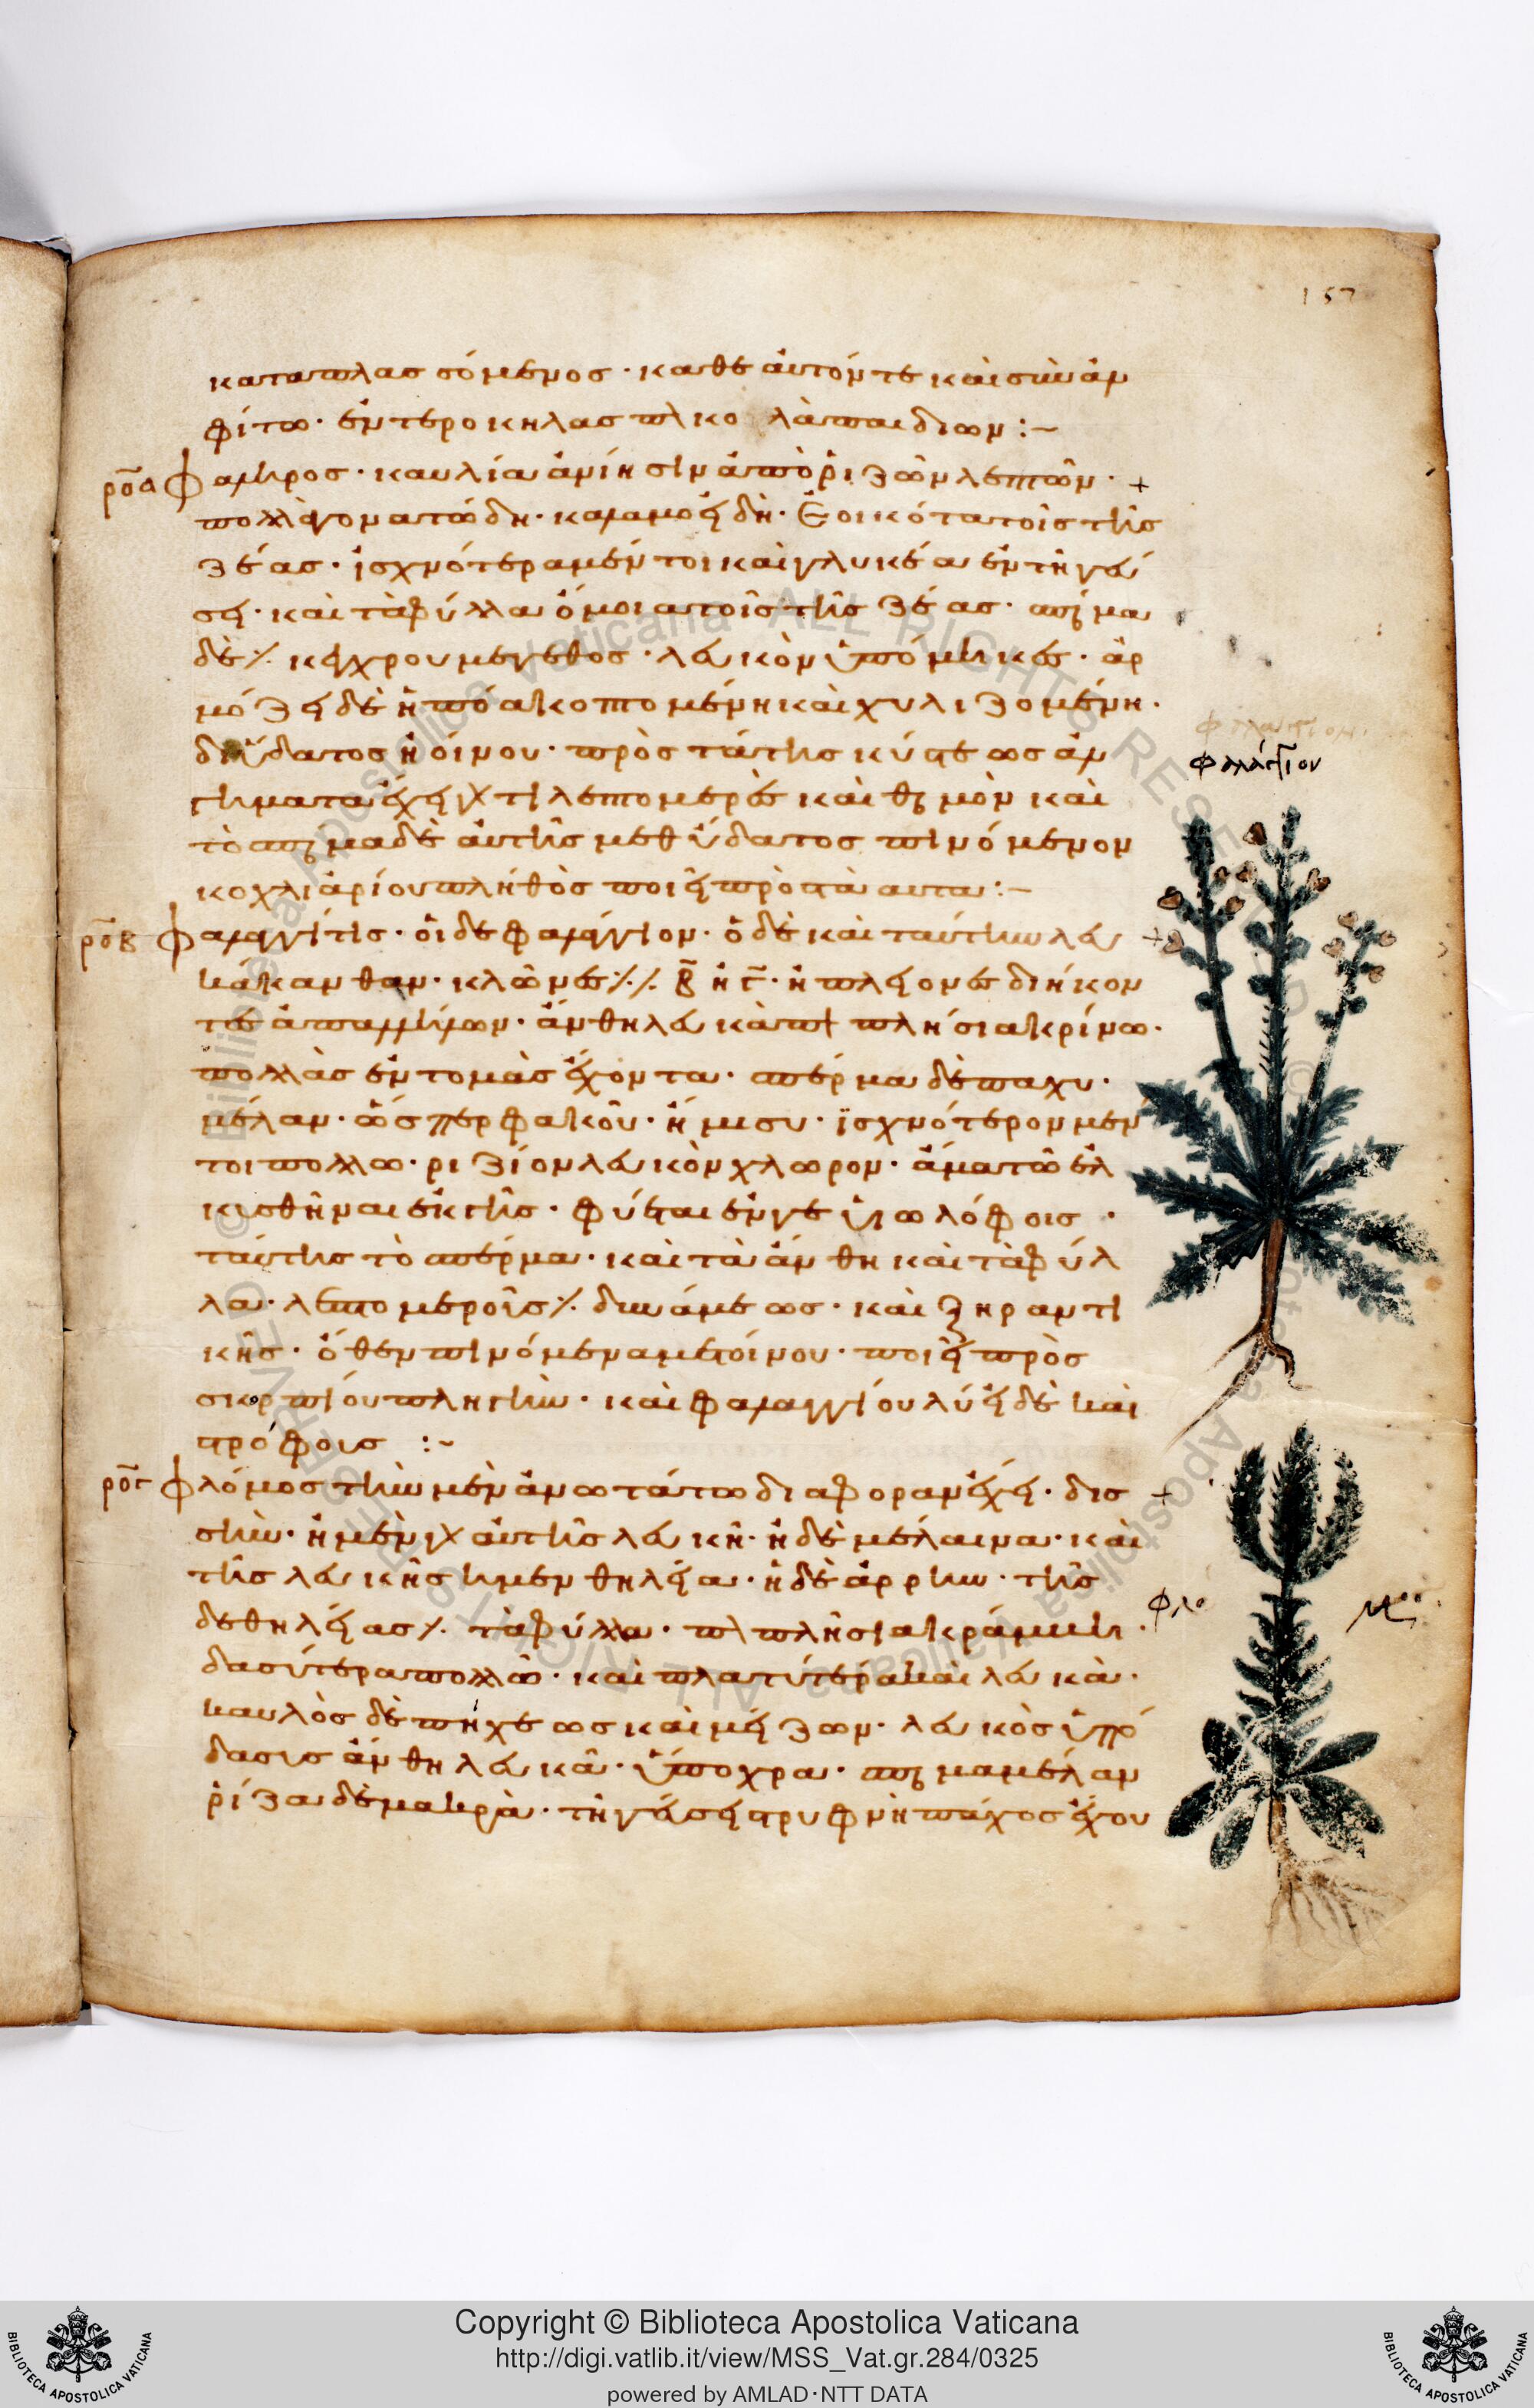 157
καταπλασσόμενος · καθ᾽ ἑαυτόν τε καὶ σὺν ἀλ
φίτω · ἐντεροκήλας
ροα Φαληρος · καυλία ἀνίησιν ἀπὸ ριζῶν λεπτῶν · +
πολλὰ γονατώδη · καλαμοειδῆ · ἐοικότα τοῖς τῆς
ζέας · ἰσχνότερα μέντοι καὶ γλυκέα ἐν τῆ γεύ
σει · καὶ τὰ φύλλα ὅμοια τοῖς τῆς ζέας · σπέρμα
δὲ ⁒ κέγχρου μέγεθος · λευκὸν ὑπόμηκες · ἁρ
μόζει δὲ ἡ πόα κοπτομένη καὶ χυλιζομένη ·
δι᾽ ὕδατος ἢ οἴνου · πρὸς τὰ τῆς κύστεως ἀλ
γήματα ἔχει γάρ τι λεπτομερὲς καὶ θερμὸν καὶ
τὸ σπέρμα δὲ αὐτῆς μεθ᾽ ὕδατος πινόμενον
κοχλιαρίου πλῆθος ποιεῖ πρὸς τὰ αυτα :~
ροβ Φαλαγγίτις · οἱ δὲ φαλάγγιον · ὁ δὲ καὶ ταύτην λευ +
κάκανθαν · κλῶνές ⁒ β ἢ γ · ἢ πλείονες διήκον
τες ἀπ᾽ ἀλλήλων · ἄνθη λευκὰ παραπλήσια κρίνω ·
πολλὰς ἐντομὰς ἔχοντα · σπέρμα δὲ παχυ ·
μέλαν · ὥσπερ φακοῦ · ἥμισυ · ἰσχνότερον μέν
τοι πολλω · ριζίον λευκὸν χλωρον · ἅμα τῶ ἑλ
κυσθῆναι ἐκ γῆς · φύεται ἐν γεωλόφοις ·
ταύτης τὸ σπέρμα · καὶ τὰ ἄνθη καὶ τὰ φύλ
λα · λεπτομεροῖς ⁒ δυνάμεως · καὶ ξηραντι
κῆς · ὅθεν πινόμενα μετ᾽ οἴνου · ποιεῖ πρὸς
σκορπίου πληγὴν · καὶ φαλαγγίου λύει δὲ καὶ
στρόφους :~
ρογ Φλόμος τὴν μὲν ἀνωτάτω διαφορὰν ἔχει · δισ +
σὴν · ἡ μὲν γὰρ αὐτῆς λευκή · ἡ δὲ μέλαινα · καὶ
τῆς λευκῆς ἡ μὲν θήλεια · ἡ δὲ ἄρρην · τῆς
δὲ θηλείας ⁒ τὰ φύλλα · παραπλήσια κράμβη ·
δασύτερα πολλῶ · καὶ πλατύτερα καὶ λευκὰ ·
καυλὸς δὲ πήχεως καὶ μείζων · λευκὸς ὑπό
δασυς ἄνθη λευκὰ · ὕπωχρα · σπέρμα μέλαν
ῥίζα δὲ μακρὰ · τῆ γεύσει στρυφνὴ πάχος ἔχου
φαλάγγιον
φλο μος
Copyright © Biblioteca Apostolica Vaticana
http://digi.vatlib.it/view/MSS_Vat.gr.284/0325
powered by AMLAD·NTT DATA
BIBLIOTECA APOSTOLICA VATICANA
BIBLIOTECA APOSTOLICA VATICANA